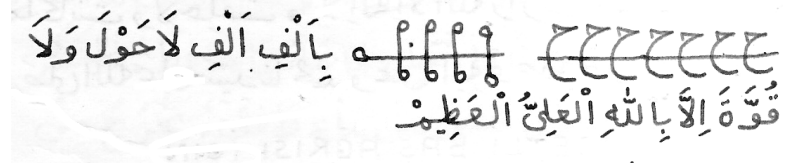 ح ح ح ح ح ح ح بِاَلْفِ اَلْفِ لاَحَوْلَ وَلاَ
قُوَّةَ اِلاَّ بِاللهِ الْعَلِىُّ الْعَظِيمْ